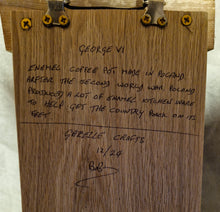 GEORGE VI
ENAMEL COFFEE POT MADE IN POLAND.
AFTER THE SECOND WORLD WAR POLAND
PRODUCED A LOT OF ENAMEL KITCHEN WARE
TO HELP GET THE COUNTRY BACK ON ITS
FEET
GERELLE CRAFTS
12/24
Bob